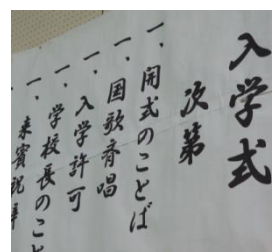 入学式
次第
一、開式のことば
一、国歌斉唱
一、入学許可
一、学校長のこと
一、来賓祝辞